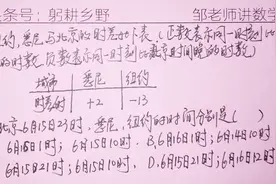 头条号：躬耕乡野 邹老师讲数学
纽约，悉尼与北京的时差如下表（正数表示同一时刻比
的时数，负数表示同一时刻比北京时间晚的时数）
城市 悉尼 纽约
时差/时 +2 -13
北京6月15日23时，悉尼，纽约的时间分别是（ ）
6月16日1时；6月15日10时．B.6月16日1时；6月14日10时
6月15日21时；6月15日10时．D.6月15日21时；6月16日12时